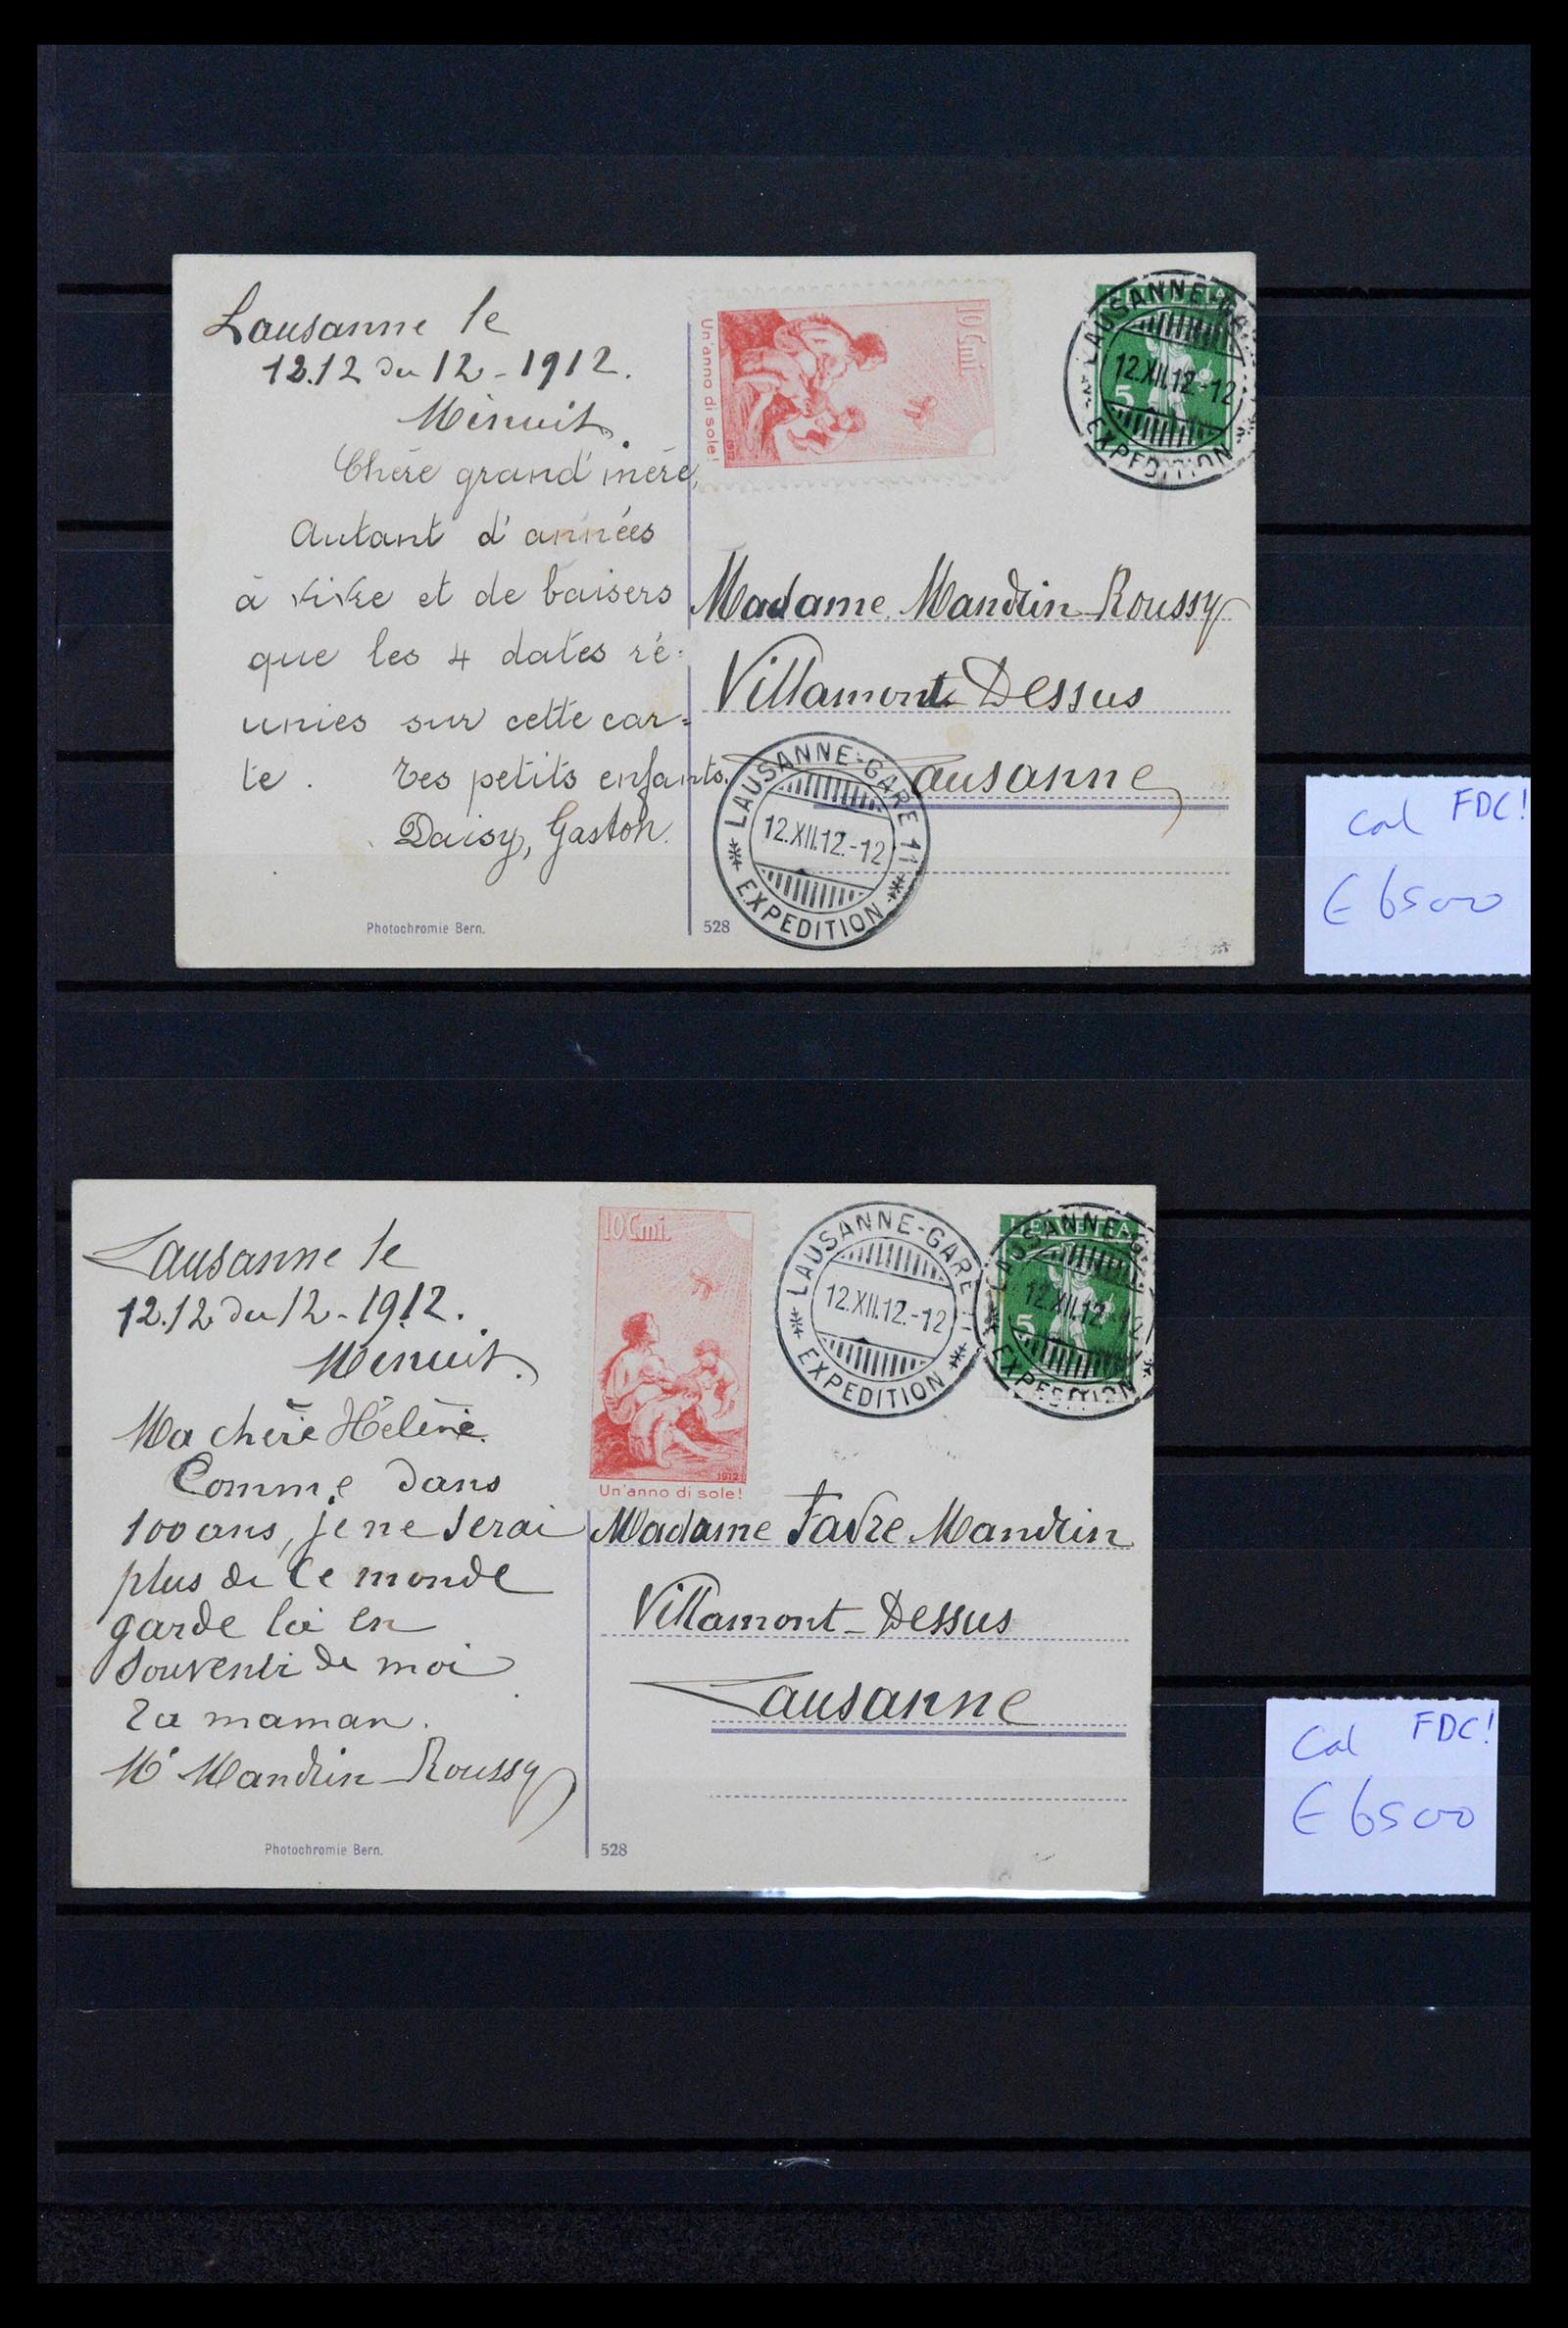 Lausanne le
12.12 du 12 - 1912.
Minuit.
Chère grand'mère,
Autant d'années
à vivre et de baisers
que les 4 dates ré-
unies sur cette car-
te. Tes petits enfants.
Daisy, Gaston.
Photochromie Bern.
10 Cmi.
1912
Un'anno di sole!
HELVETIA
5
LAUSANNE-GARE
12.XII.12.-12
EXPEDITION
Madame Mandrin-Roussy
Villamont-Dessus
Lausanne
LAUSANNE-GARE 11
12.XII.12.-12
EXPEDITION
528
Cat FDC!
€ 6500
Lausanne le
12.12 du 12 - 1912.
Minuit.
Ma chère Hélène.
Comme dans
100 ans, je ne serai
plus de ce monde
garde la en
souvenir de moi
Ta maman.
Mandrin-Roussy
Photochromie Bern.
10 Cmi.
1912
Un'anno di sole!
LAUSANNE-GARE 11
12.XII.12.-12
EXPEDITION
HELVETIA
5
LAUSANNE-G
12.XII.12.-12
EXPEDITION
Madame Favre Mandrin
Villamont-Dessus
Lausanne
528
Cat FDC!
€ 6500